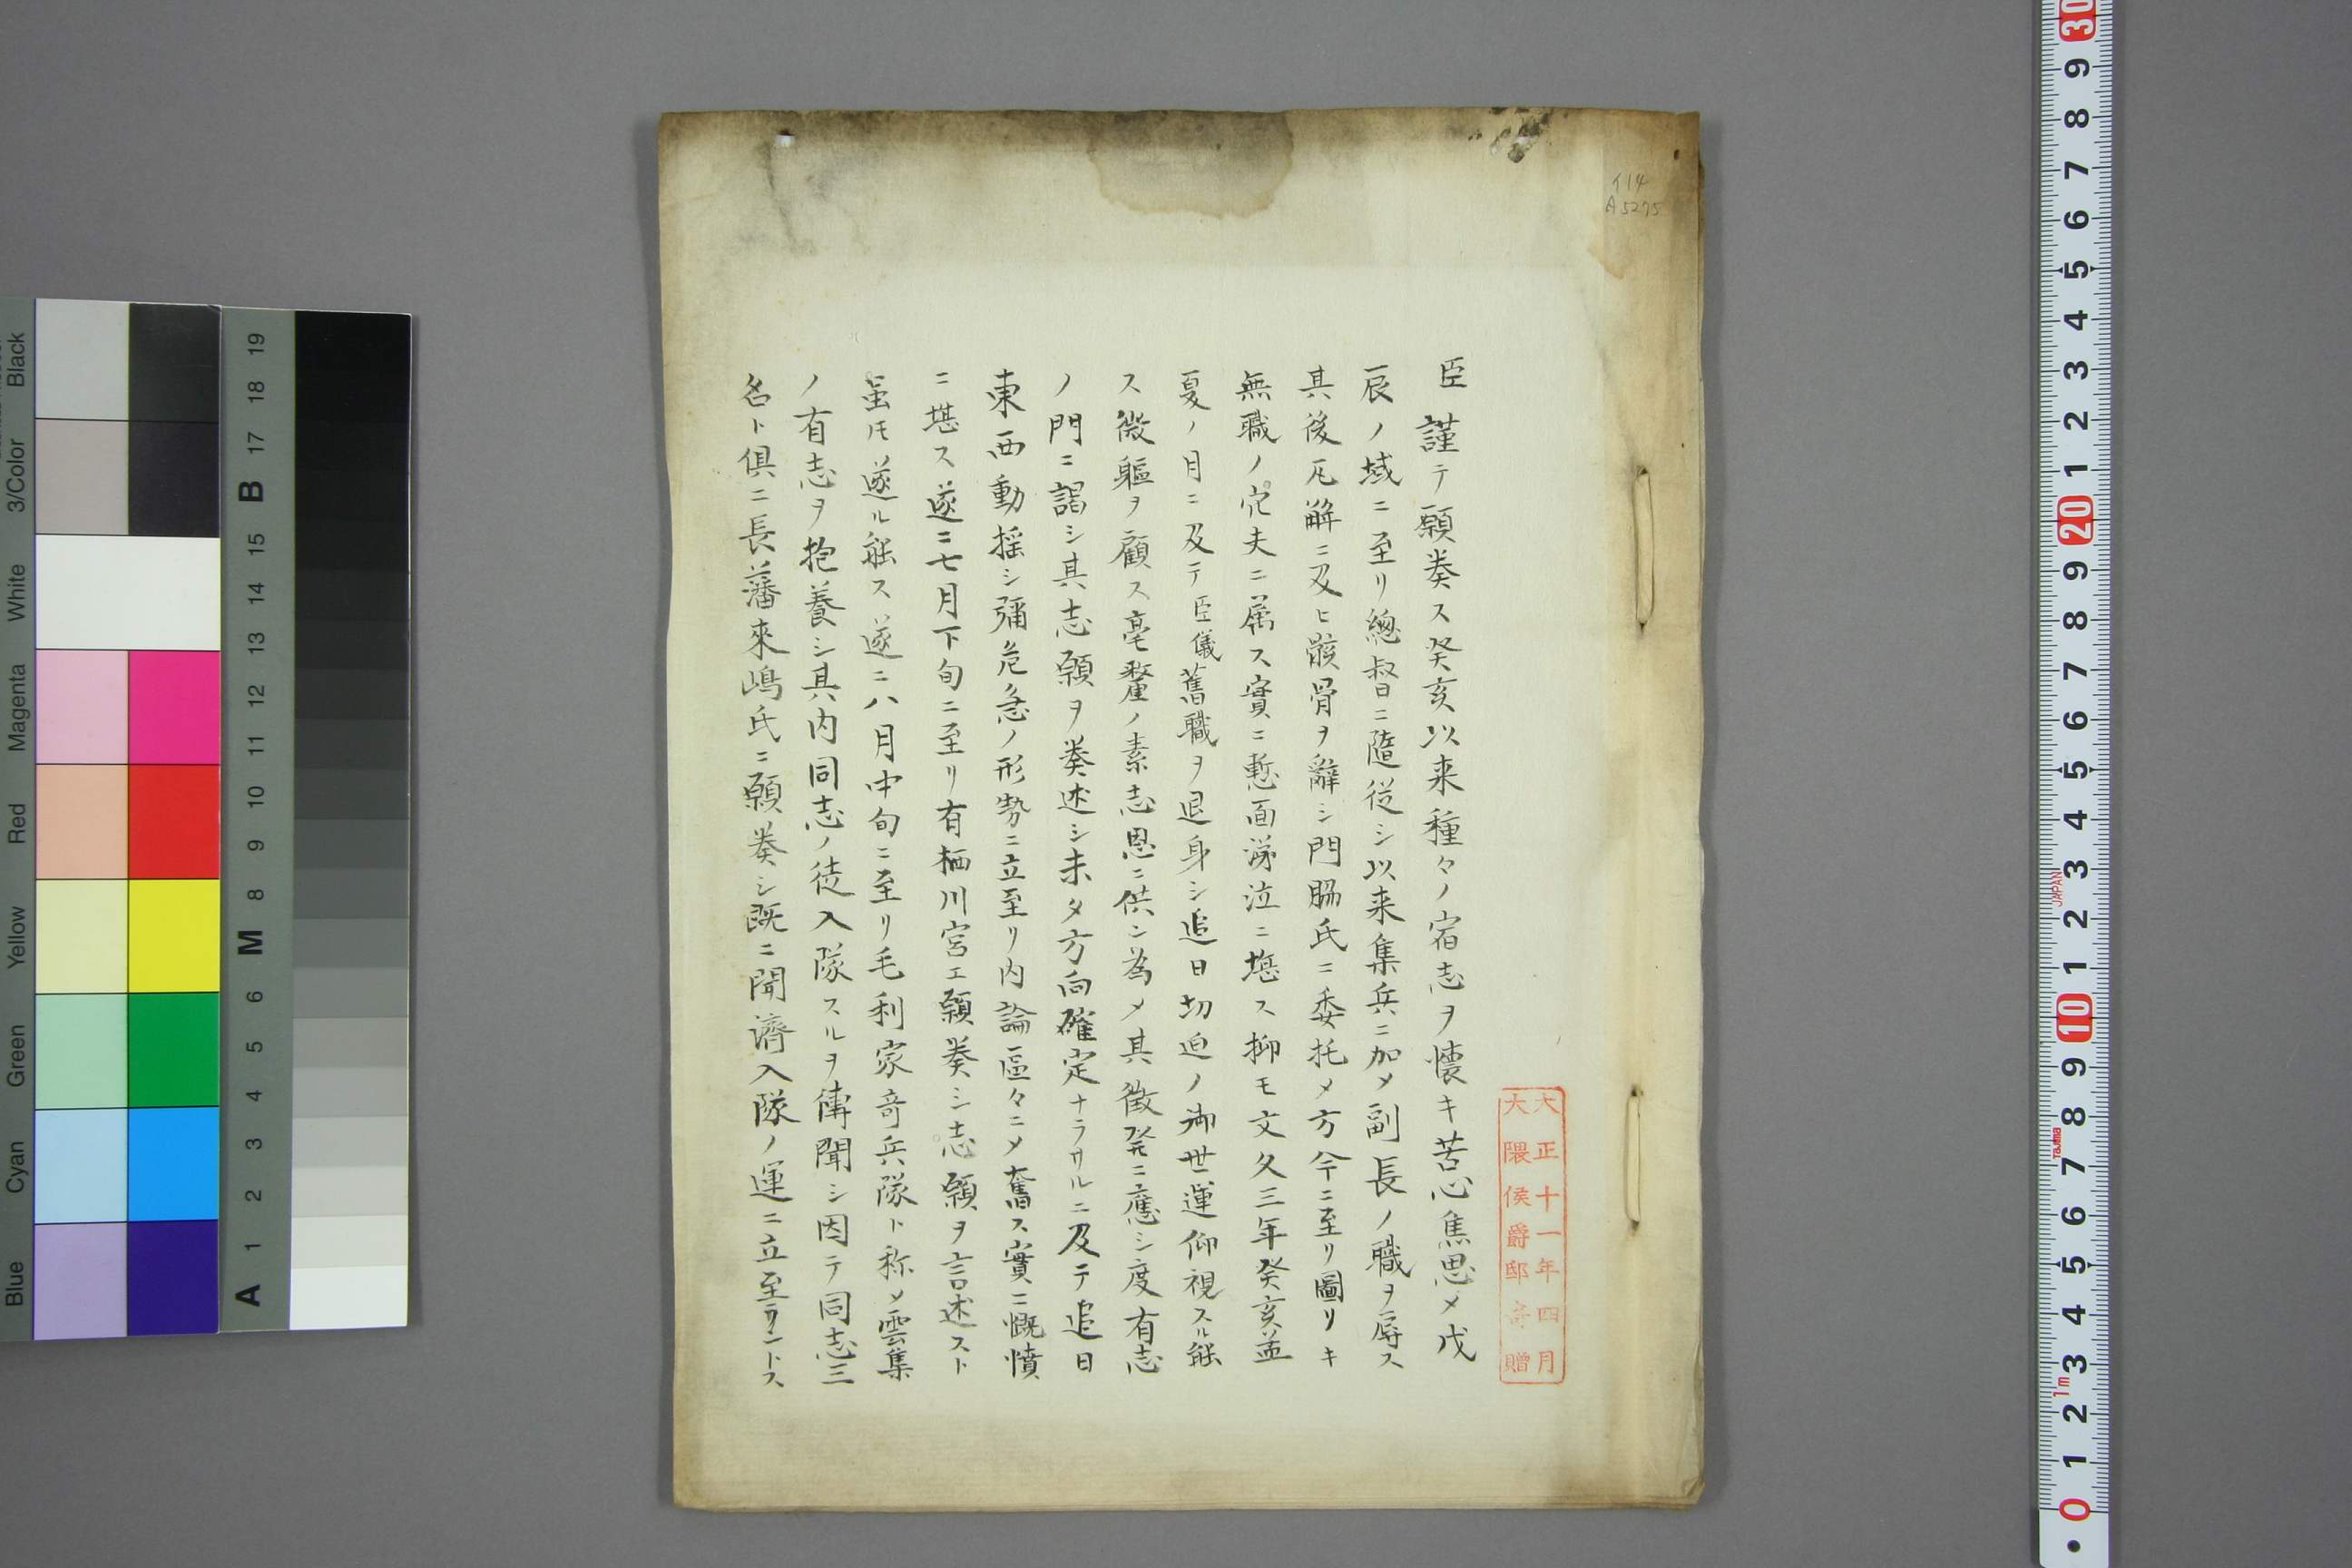 臣謹テ願奏ス癸亥以来種々ノ宿志ヲ懐キ苦心焦思メ戊
辰ノ域ニ至リ總督ニ隨從シ以来集兵ニ加メ副長ノ職ヲ辱ス
其後瓦解ニ及ヒ骸骨ヲ辭シ門脇氏ニ委托メ方今ニ至リ圖リキ
無職ノ冗夫ニ属ス實ニ慙面涕泣ニ堪ス抑モ文久三年癸亥孟
夏ノ月ニ及テ臣儀舊職ヲ退身シ追日切迫ノ御世運仰視スル能
ス微軀ヲ顧ス毫釐ノ素志恩ニ供ン為メ其徴発ニ應シ度有志
ノ門ニ謁シ其志願ヲ奏述シ未タ方向確定ナラサルニ及テ追日
東西動揺シ彌危急ノ形勢ニ立至リ内論區々ニメ奮ス實ニ慨憤
ニ堪ス遂ニ七月下旬ニ至リ有栖川宮エ願奏シ志願ヲ言述スト
虽モ遂ル能ス遂ニ八月中旬ニ至リ毛利家竒兵隊ト称メ雲集
ノ有志ヲ抱養シ其内同志ノ徒入隊スルヲ傳聞シ因テ同志三
名ト俱ニ長藩來嶋氏ニ願奏シ既ニ聞濟入隊ノ運ニ立至ラントス
大正十一年四月
大隈侯爵邸寄贈
イ14
A5275
Black
3/Color
White
Magenta
Red
Yellow
Green
Cyan
Blue
19
18
17
B
15
14
13
12
11
10
9
8
M
6
5
4
3
2
1
A
30
9
8
7
6
5
4
3
2
1
20
9
8
7
6
5
4
3
2
1
10
9
8
7
6
5
4
3
2
1
0
JAPAN
TAJIMA
1m